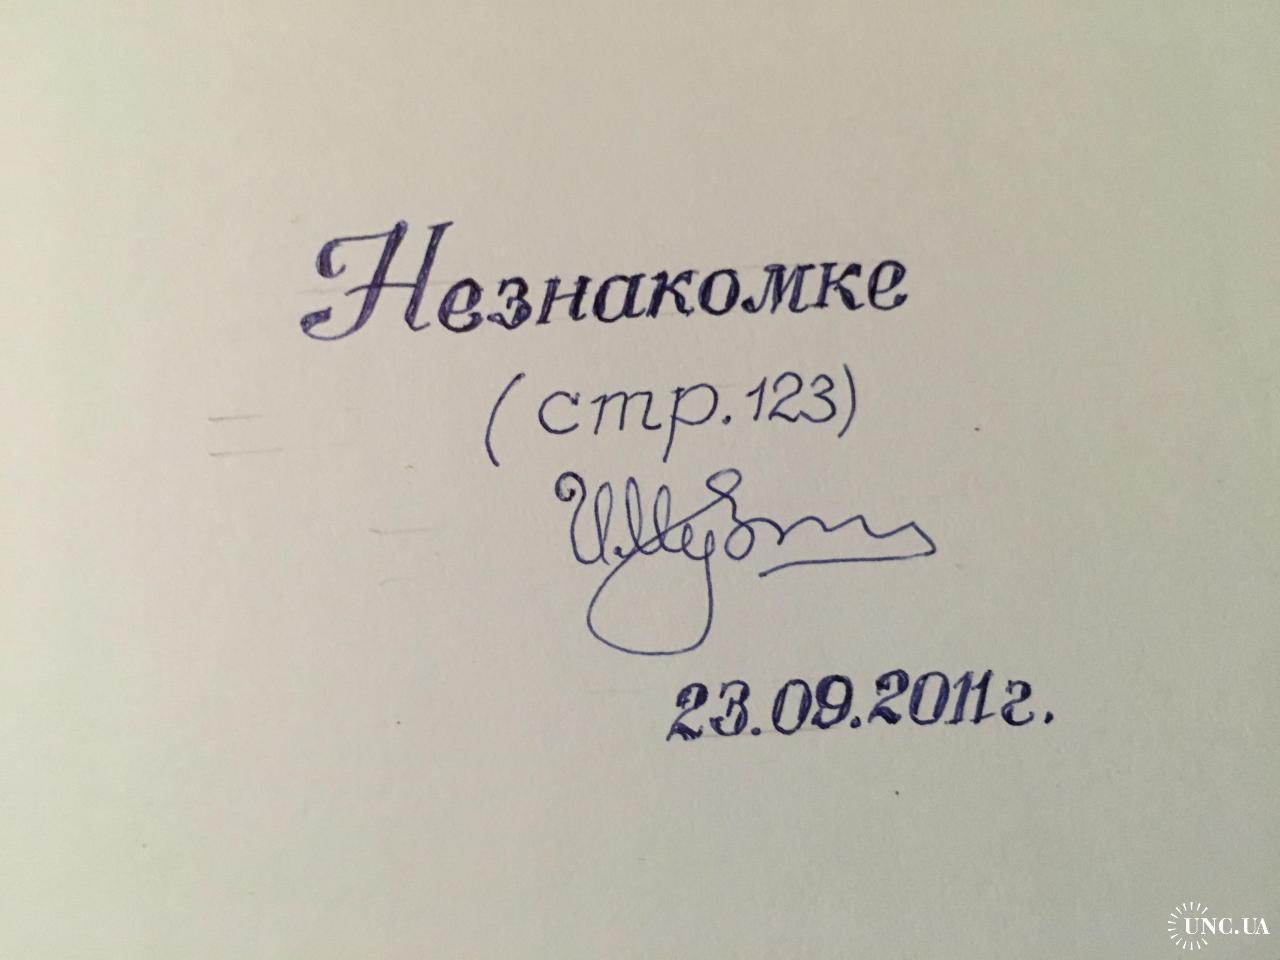 Незнакомке
(стр. 123)
23.09.2011г.
UNC.UA